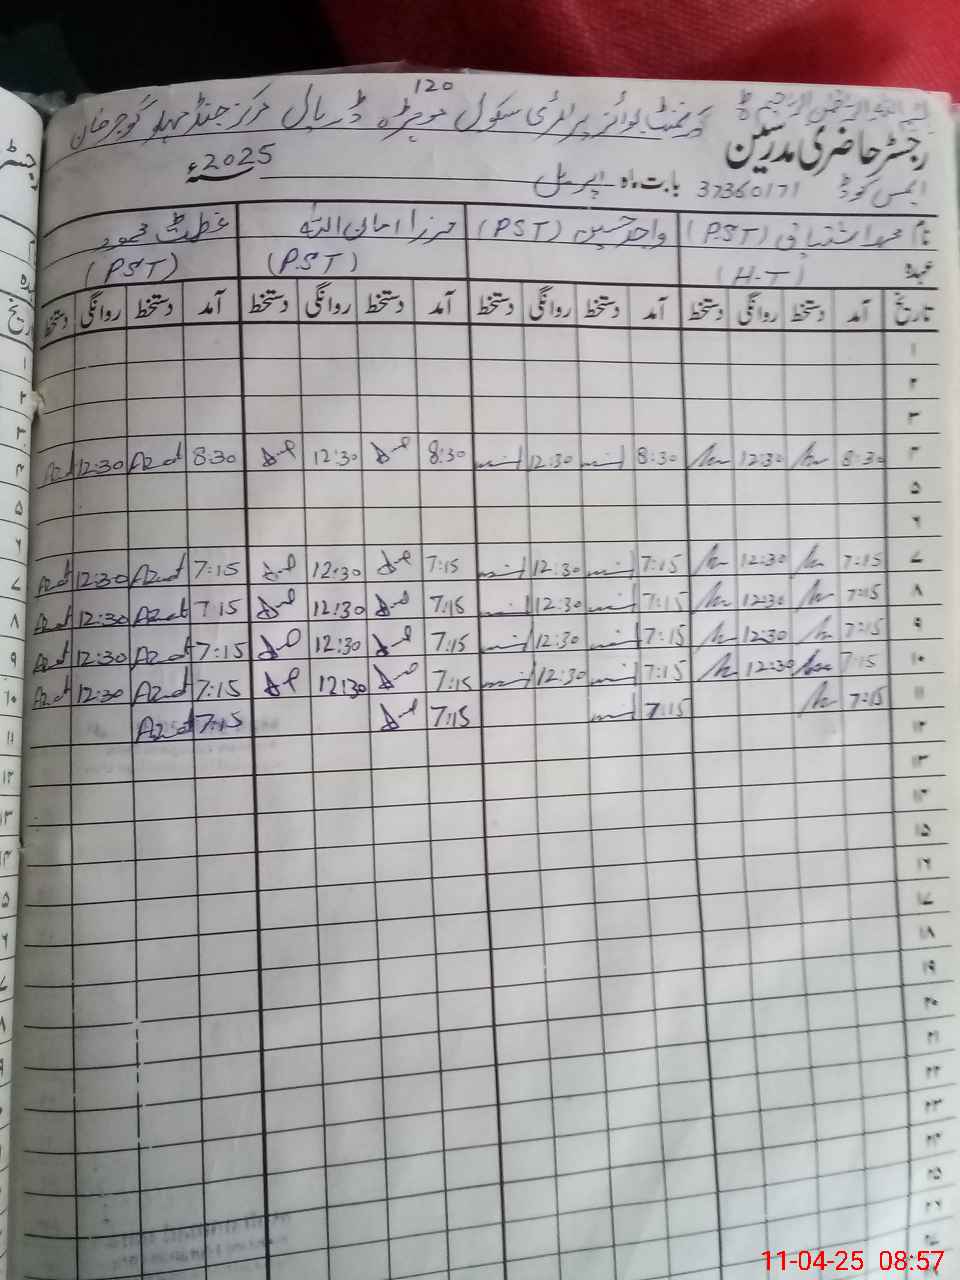 120
گورنمنٹ بوائز پرائمری سکول موہڑہ ڈریال مرکز جنڈ مہلو گوجرخان
بسم اللہ الرحمٰن الرحیم
رجسٹر حاضری مدرسین
ایمس کوڈ 37360171 بابت ماہ اپریل سنہ 2025ء
نام محمد اشتیاق (PST) واجد حسین (PST) مرزا امان اللہ محمود
عہدہ (H.T) (P.S.T) (P.S.T)
تاریخ آمد دستخط روانگی دستخط آمد دستخط روانگی دستخط آمد دستخط روانگی دستخط آمد دستخط روانگی دستخط
۱
۲
۳
۴ 8:30 12:30 8:30 12:30 8:30 12:30 8:30 Azad 12:30 Azad
۵
۶
۷ 7:15 12:30 7:15 12:30 7:15 12:30 7:15 Azad 12:30 Azad
۸ 7:15 12:30 7:15 12:30 7:15 12:30 7:15 Azad 12:30 Azad
۹ 7:15 12:30 7:15 12:30 7:15 12:30 7:15 Azad 12:30 Azad
۱۰ 7:15 12:30 7:15 12:30 7:15 12:30 7:15 Azad 12:30 Azad
۱۱ 7:15 7:15 7:15 7:15 Azad
۱۲
۱۳
۱۴
۱۵
۱۶
۱۷
۱۸
۱۹
۲۰
۲۱
۲۲
۲۳
۲۴
۲۵
11-04-25 08:57